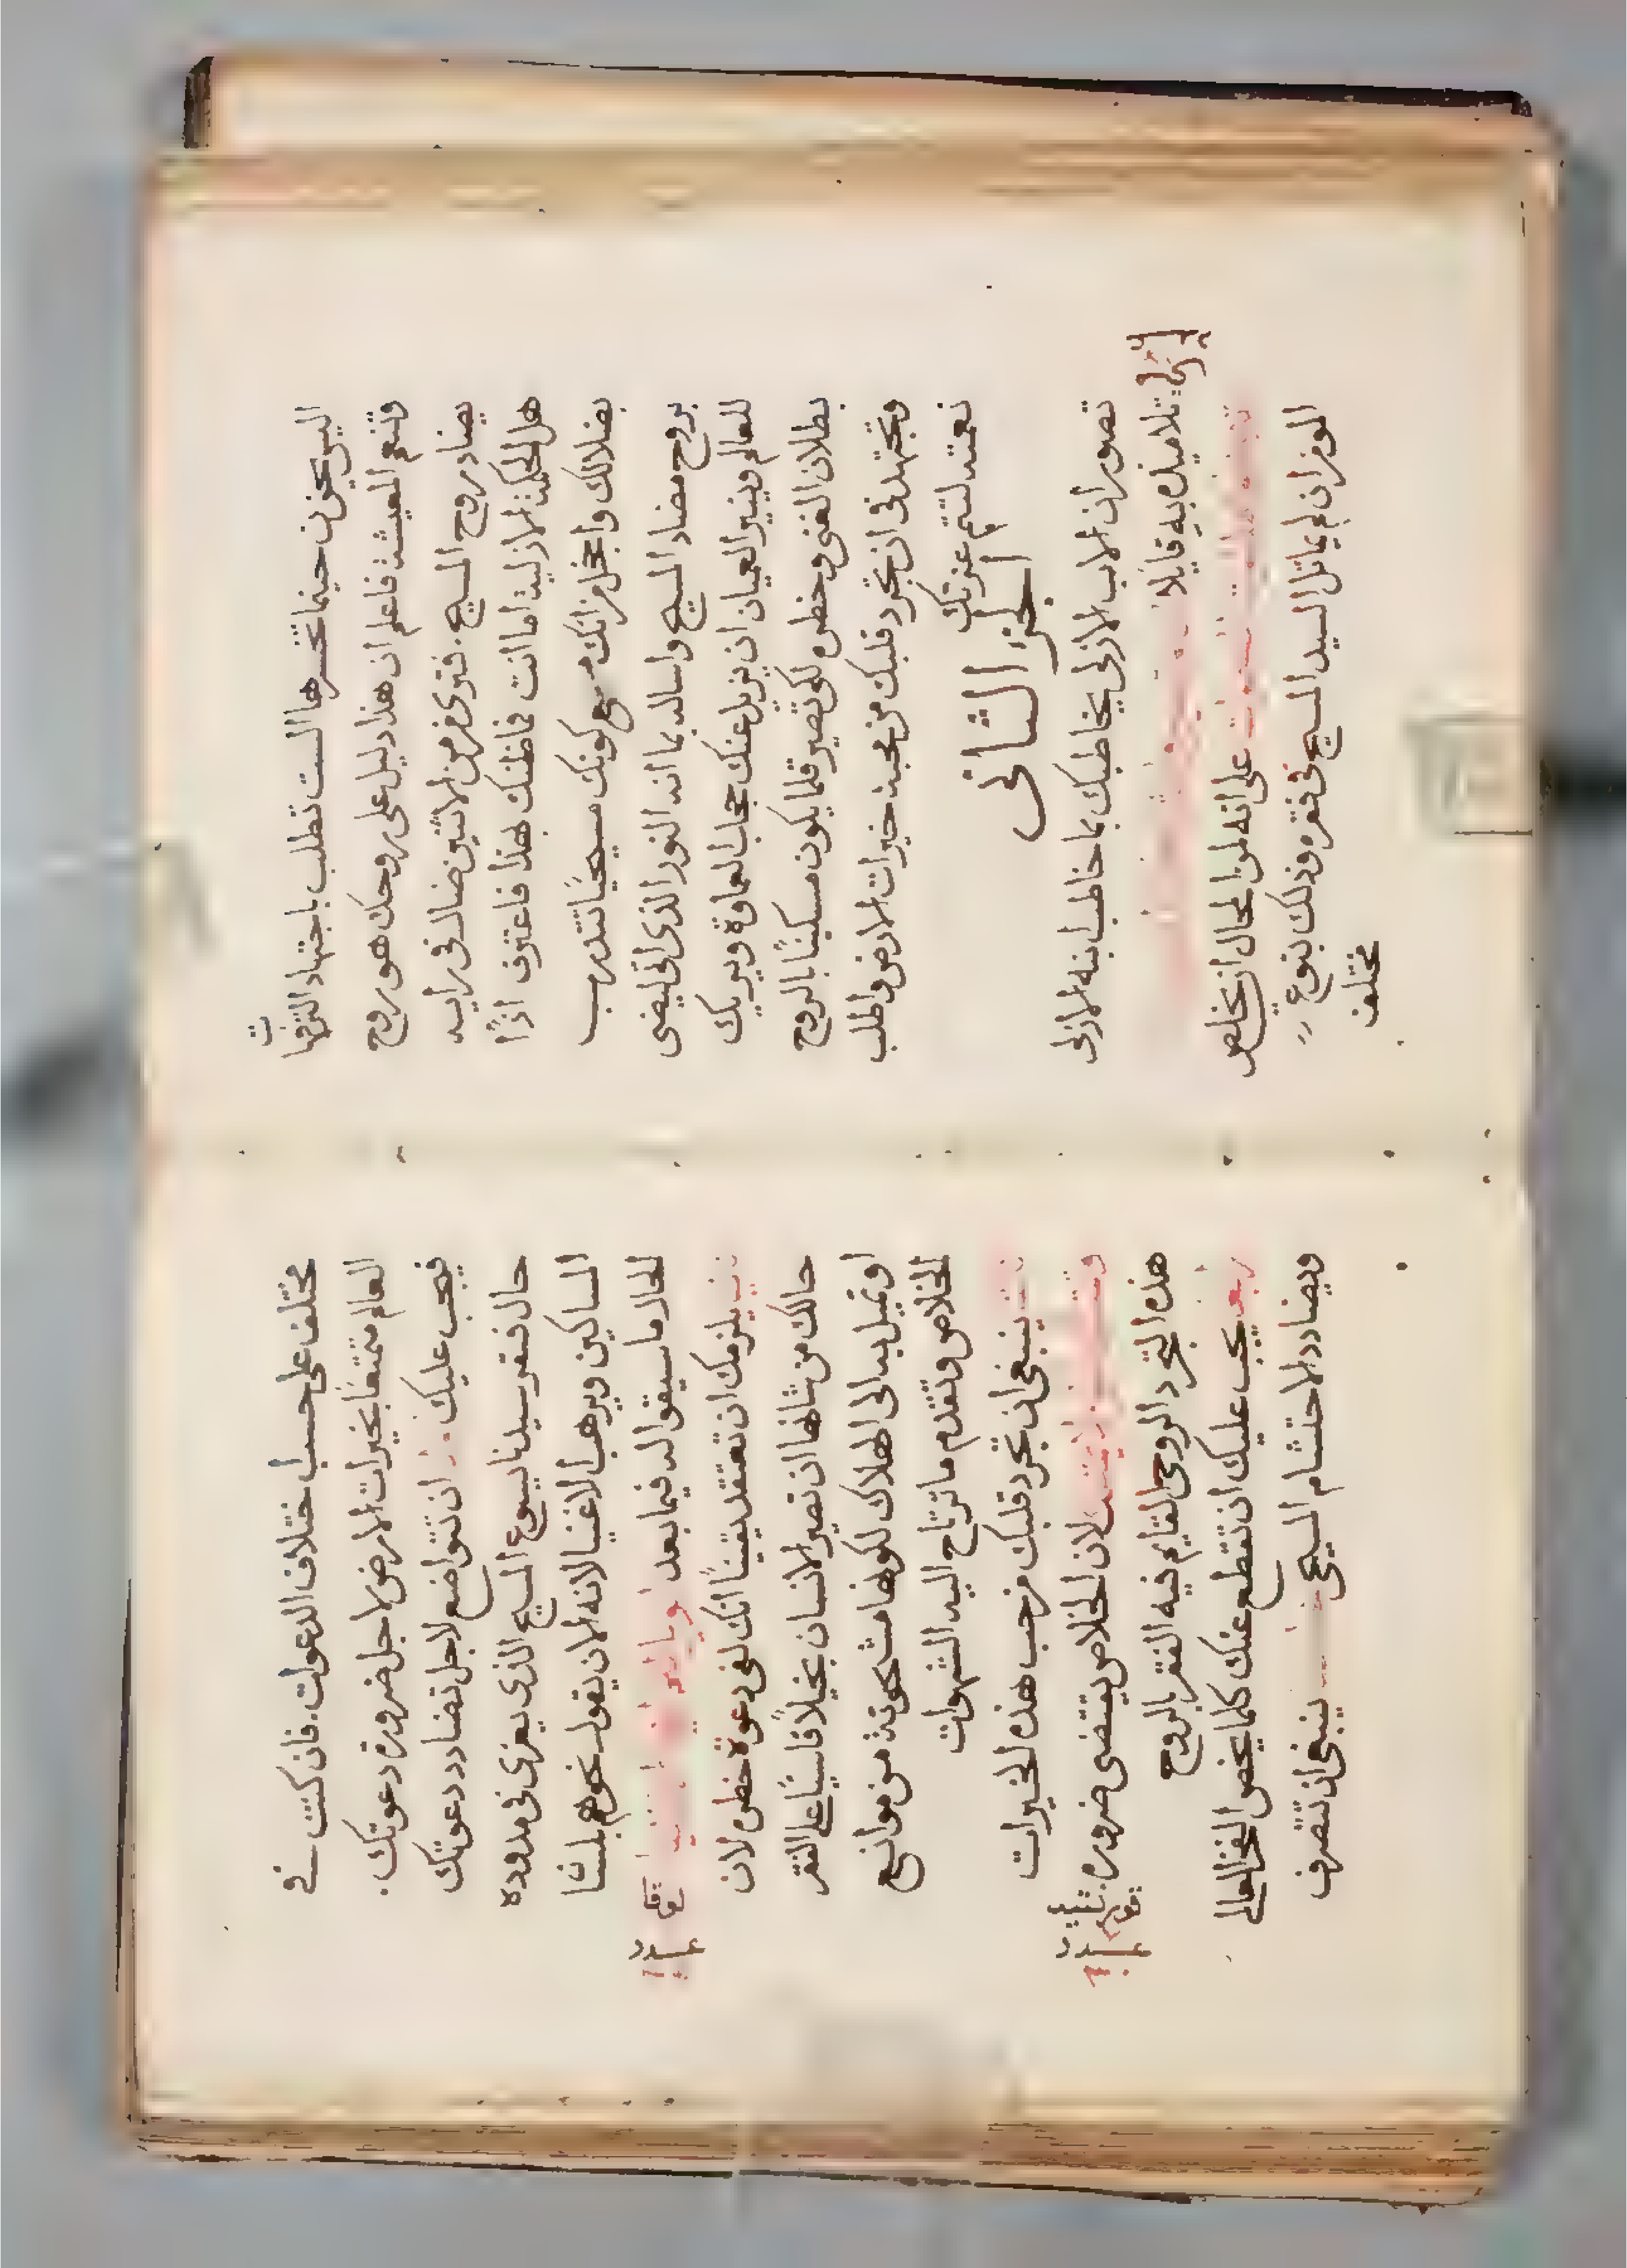 اليس بحزن حينما تخسرها الست تطلب باجتهاد الترفهات
وتنعم المعيشة فاعلم ان هذا دليل على روحك هو روح
يضاد روح المسيح. فترى من من الاثنين ضال في رايه
هل الحكمة الازلية اما انت فما ظنك بهذا فاعترف اذًا
بضلالك واخجل من انك مع كونك مسيحيًا تتدرب
بروح مضاد المسيح واساله بما انه النور الذي اتى ليضى
للعالم وينير العميان ان يزيل عنك حجاب العماوة ويريك
بطلان الغنى وخطره لكي تصير قلما يكون مسكينًا بالروح
وتجتهد في ان تجرد قلبك من محبة خيرات الارض واطلب
نعمته لتتم عزتك
الجز الثاني
تصور ان الاب الازلي يخاطبك بما خاطب ابنه الازلى
تلاميذه به قايلا
على انه لمن المحال ان يخلص
المومن ان لم يماثل السيد المسيح في فقره وذلك بنوع
مختلف
مختلف على حسب اختلاف الدعوات. فان كنت في
العالم متمتعًا بخيرات الارض لاجل ضرورة دعوتك.
فيجب عليك ان تتواضع لاجل تضادد دعوتك
حال فقر سيدنا يسوع المسيح الذي يعزى في مدوده
المساكين ويرهب الاغنيا لانه الان يقول نحوهم بلسان
الحال ما سيقوله فيما بعد الويل لكم ايها الاغنيا
يلزمك ان تعتقد يقينًا انك لفي دعوة خطره لان
حالك من شانها ان تصير الانسان بخيلاً قاسيًا على الفقر
او تميل به الى الهلاك لكونها مشحونة من موانع
الخلاص وتقدم ما ترتاح اليه الشهوات
ينبغي ان تجرد قلبك من حب هذه الخيرات
لان الخلاص يقتضي ضروره
هذه التجرد الروحي القايم فيه الفقر بالروح
يجب عليك ان تقطع عنك كلما يخص الفخر العالمي
ويضادد الاحتشام المسيحي ينبغي ان تتصرف